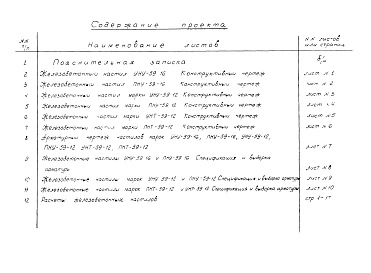 Содержание проекта
№№ п/п Наименование листов №№ листов или страниц
1 Пояснительная записка б/н
2 Железобетонный настил УНУ-59-16 Конструктивный чертеж лист № 1
3 Железобетонный настил ПНУ-59-16 Конструктивный чертеж лист № 2
4 Железобетонный настил марки УНУ-59-12 Конструктивный чертеж лист № 3
5 Железобетонный настил марки ПНУ-59-12 Конструктивный чертеж лист № 4
6 Железобетонный настил марки УНТ-59-12 Конструктивный чертеж лист № 5
7 Железобетонный настил марки ПНТ-59-12 Конструктивный чертеж лист № 6
8 Арматурный чертеж настилов марок УНУ-59-16, ПНУ-59-16, УНУ-59-12,
ПНУ-59-12 УНТ-59-12, ПНТ-59-12 лист № 7
9 Железобетонные настилы УНУ-59-16 и ПНУ-59-16 Спецификация и выборка
арматуры лист № 8
10 Железобетонные настилы марок УНУ-59-12 и ПНУ-59-12 Спецификация и выборка арматуры лист № 9
11 Железобетонные настилы марок ПНТ-59-12 и УНТ-59-12 Спецификация и выборка арматуры лист № 10
12 Расчеты железобетонных настилов стр 1-